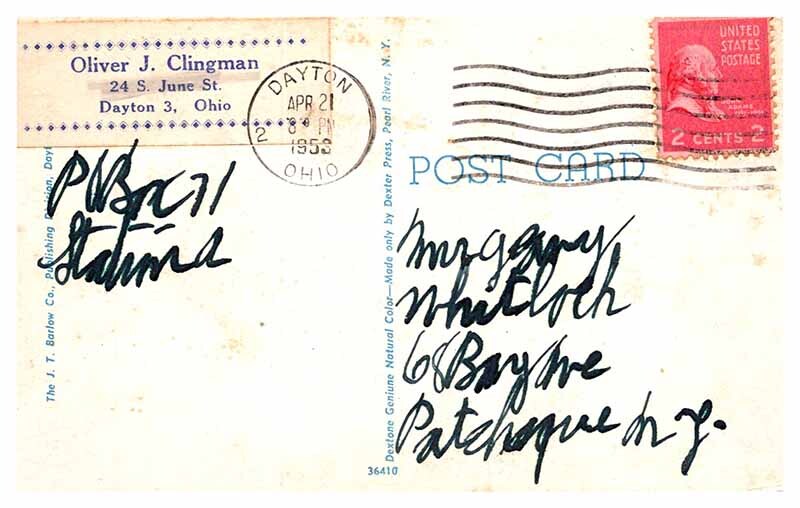 Oliver J. Clingman
24 S. June St.
Dayton 3, Ohio
DAYTON
2
APR 21
8 PM
1953
OHIO
UNITED
STATES
POSTAGE
ADAMS
2 CENTS 2
POST CARD
P O Box 71
Station A
Mr Gerry
Whitlock
68 Bay Ave
Patchogue N.Y.
The J. T. Barlow Co., Publishing Division, Dayt
Dextone Geniune Natural Color—Made only by Dexter Press, Pearl River, N. Y.
36410